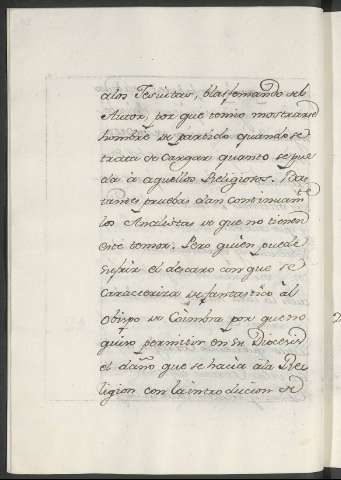 alos Jesuitas, blasfemando del
Autor, por que temio mostrarse
hombre de partido quando se
trata de Cargar quanto se pue
da à aquellos Religiosos. Bas
tantes pruebas dan continuamte
los Analistas de que no tienen
este temor. Pero quien puede
sufrir el descaro con que se
Caracteriza de fantastico àl
Obispo de Coimbra por que no
quiso permitir en su Diocesis
el daño que se hacia ala Re-
ligion con la introducion de